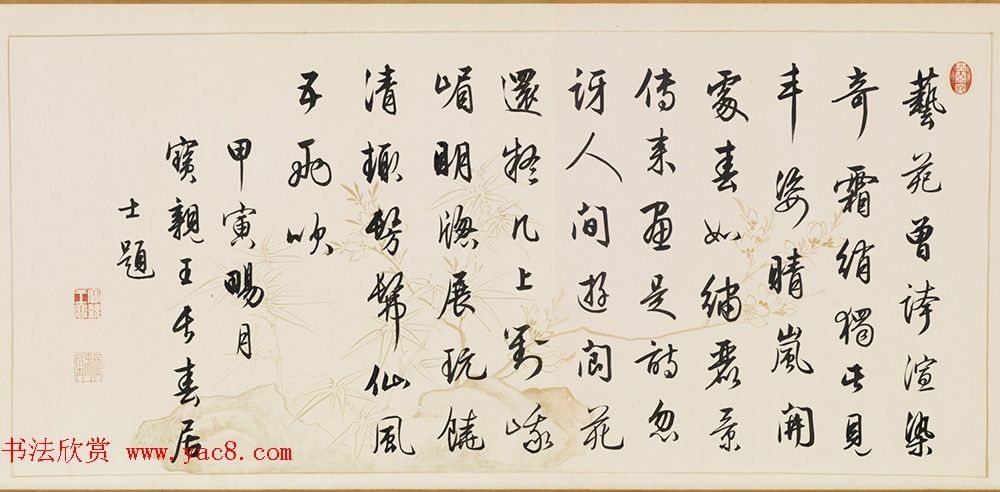 藝苑曾誇渲染
奇霜綃獨此見
丰姿晴嵐開
處春如繡麗景
傳来畫是詩忽
訝人間遊閬苑
還疑几上對峨
嵋明窓展玩饒
清趣髣髴仙風
五兩吹
甲寅暢月
寶親王長春居
士題
书法欣赏 www.yac8.com